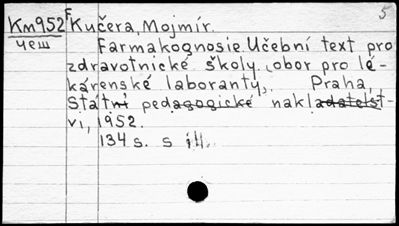 5
Км952 F Kučera, Mojmír.
чеш Farmakognosie. Učební text pro
zdravotnické školy, obor pro lé-
kárenské laboranty. Praha,
Státní pedagogické nakladatelst-
vi, 1952.
134 s. s il.